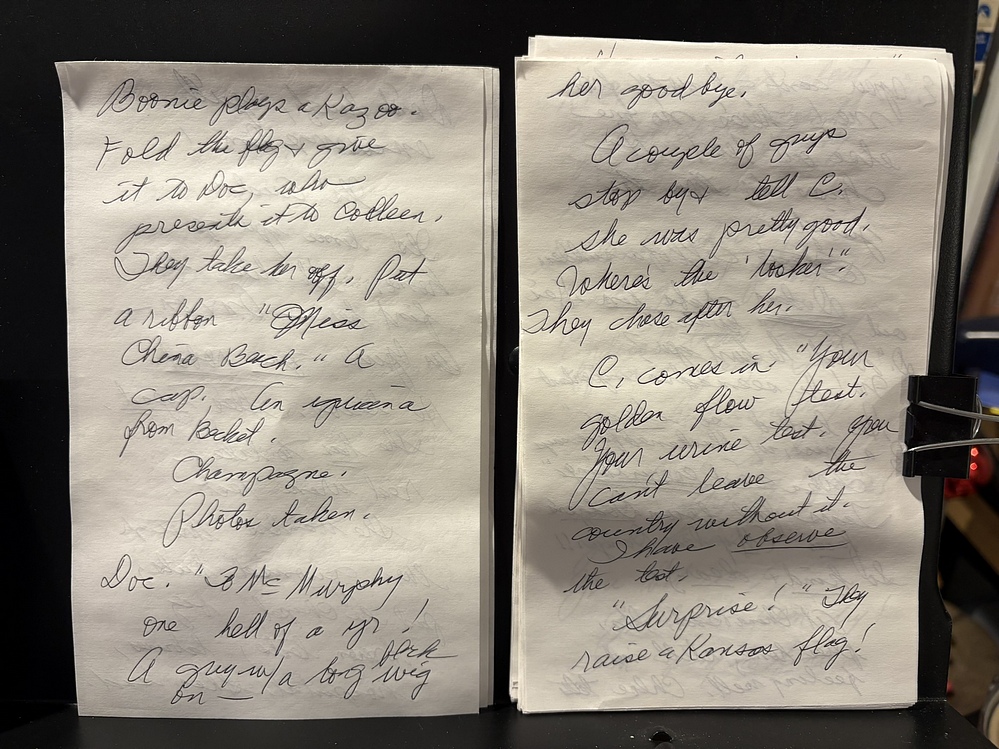 Boonie plays a Kazoo.
Fold the flag & give
it to Doc, who
presents it to Colleen.
They take her off. Put
a ribbon "Miss
China Beach." A
cap. An iguana
from Becket.
Champagne.
Photos taken.
Doc. "To McMurphy
one hell of a yr!
A guy w/a long black wig
on —
her good bye.
A couple of guys
stop by & tell C.
she was pretty good.
Where's the 'looker'."
They chase after her.
C. comes in. "Your
golden flow test.
Your urine test. You
can't leave the
country without it.
I have observe
the test.
"Surprise!" They
raise a Kansas flag!